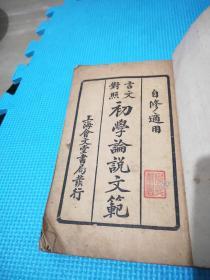 自修適用
言文對照
初學論說文範
上海會文堂書局發行